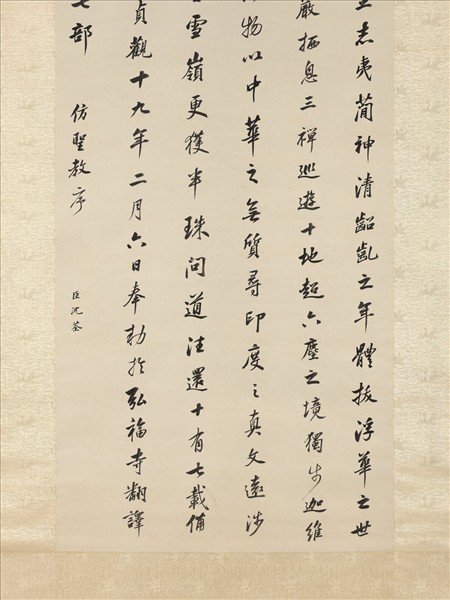 立志夷簡神清齠齔之年體拔浮華之世
巖栖息三禪巡遊十地超六塵之境獨步迦維
物以中華之無質尋印度之真文遠涉
雪嶺更獲半珠問道往還十有七載備
貞觀十九年二月六日奉勅於弘福寺翻譯
七部 仿聖教序
臣沈荃